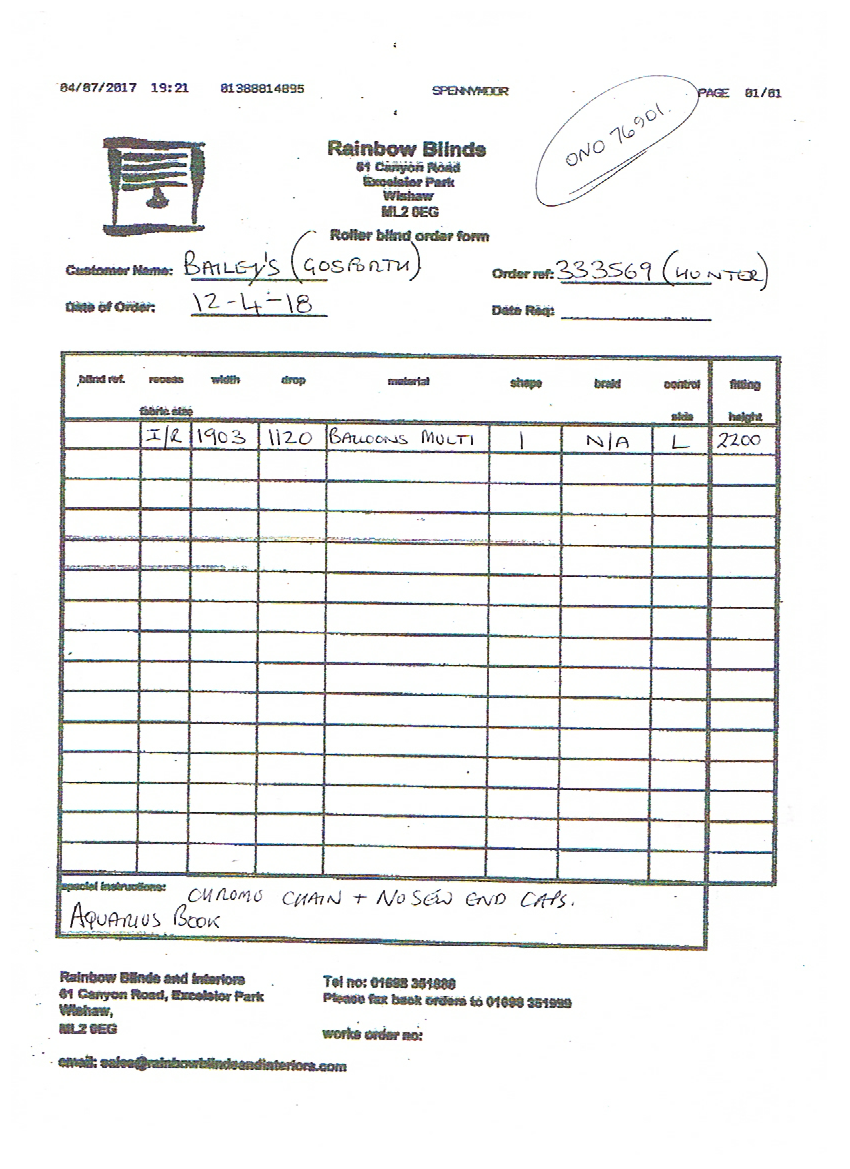 04/07/2017 19:21 01388814895 SPENNYMOOR PAGE 01/01
ONO 76901.
Rainbow Blinds
61 Canyon Road
Excelsior Park
Wishaw
ML2 0EG
Roller blind order form
Customer Name: BAILEY'S (GOSFORTH) Order ref: 333569 (HUNTER)
Date of Order: 12-4-18 Date Req:
blind ref. recess width drop material shape braid control fitting
fabric size side height
I/R 1903 1120 BALLOONS MULTI 1 N/A L 2200
special instructions: CHROME CHAIN + NO SEW END CAPS.
AQUARIUS BOOK
Rainbow Blinds and Interiors Tel no: 01698 351888
61 Canyon Road, Excelsior Park Please fax back orders to 01698 351999
Wishaw,
ML2 0EG works order no:
email: sales@rainbowblindsandinteriors.com